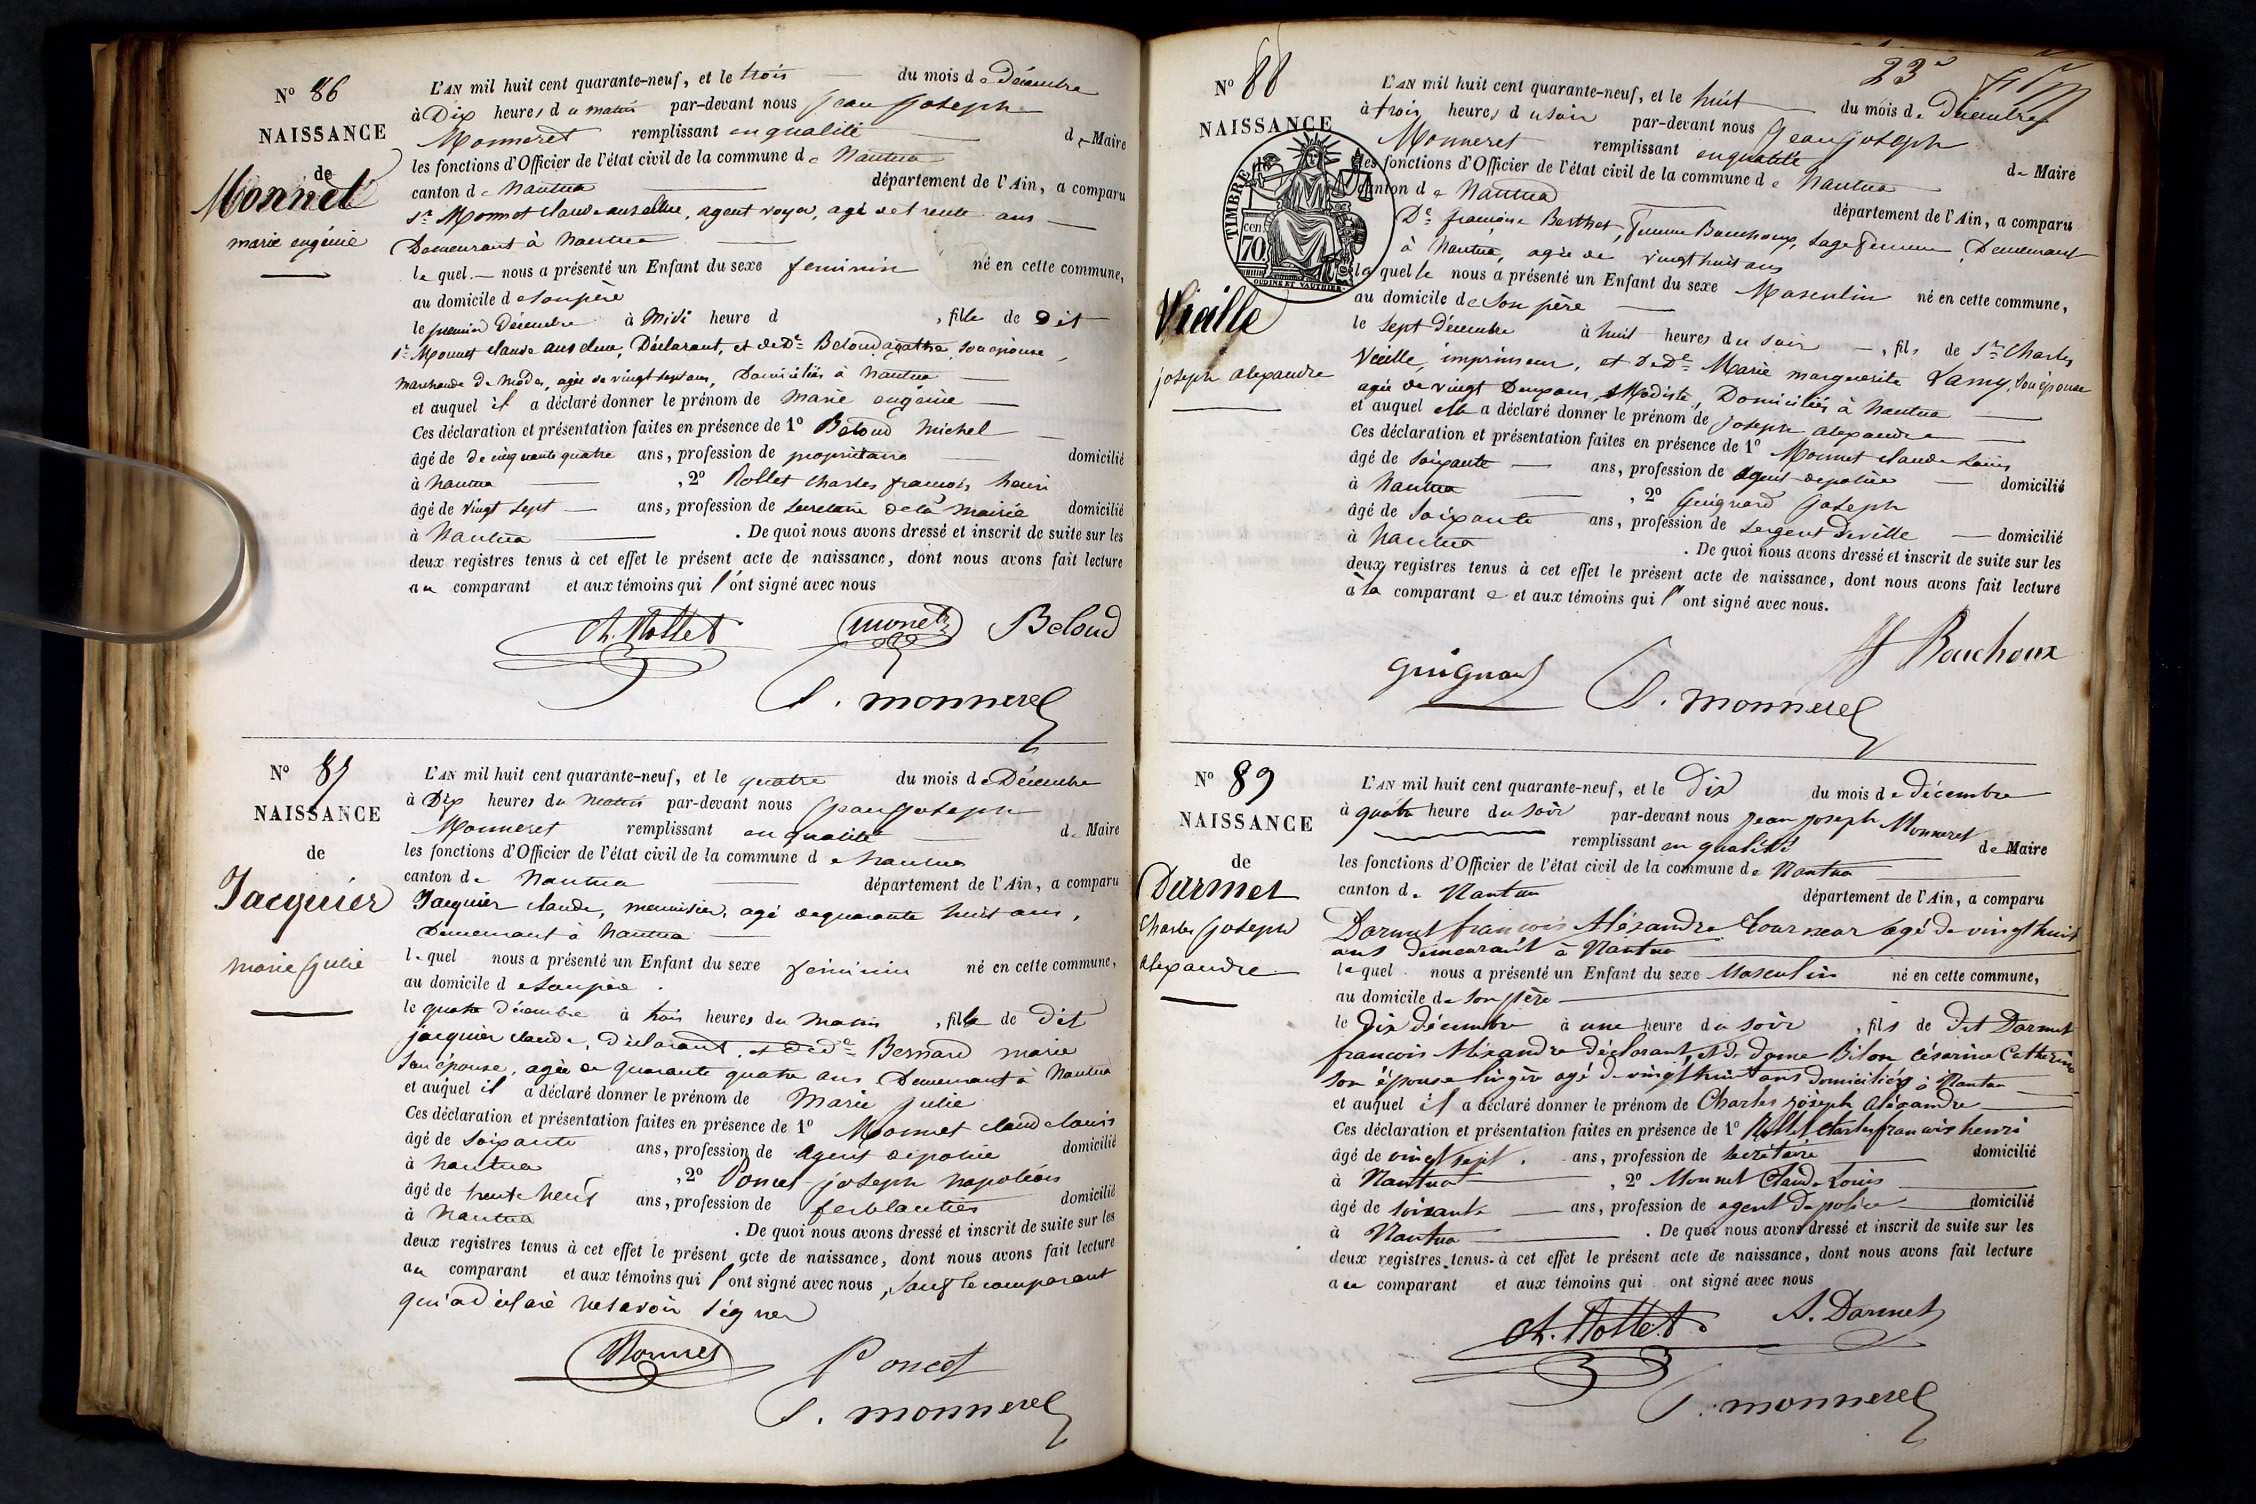 N° 86
NAISSANCE
de
Monnet
marie eugénie
L'AN mil huit cent quarante-neuf, et le trois du mois de Décembre
à Dix heures du matin par-devant nous Jean Joseph
Monneret remplissant en qualité de Maire
les fonctions d'Officier de l'état civil de la commune de Nantua
canton de Nantua département de l'Ain, a comparu
Sr Monnet Claude anselme, agent voyer, agé de trente ans
Demeurant à Nantua
lequel nous a présenté un Enfant du sexe feminin né en cette commune,
au domicile de son père
le premier Décembre à Midi heure d , fille de Dit
Sr Monnet Claude anselme, Déclarant, et de De Beloud agathe, son épouse,
marchande de modes, agée de vingt sept ans, Domiciliés à Nantua
et auquel il a déclaré donner le prénom de Marie eugénie
Ces déclaration et présentation faites en présence de 1° Beloud Michel
âgé de de cinquante quatre ans, profession de propriétaire domicilié
à Nantua , 2° Rollet Charles françois henri
âgé de vingt sept ans, profession de Secrétaire de la Mairie domicilié
à Nantua . De quoi nous avons dressé et inscrit de suite sur les
deux registres tenus à cet effet le présent acte de naissance, dont nous avons fait lecture
au comparant et aux témoins qui l'ont signé avec nous
Ch. Rollet monet Beloud
J. monneret
N° 87
NAISSANCE
de
Jacquier
marie Julie
L'AN mil huit cent quarante-neuf, et le quatre du mois de Décembre
à Dix heures du matin par-devant nous Jean Joseph
Monneret remplissant en qualité de Maire
les fonctions d'Officier de l'état civil de la commune de Nantua
canton de Nantua département de l'Ain, a comparu
Jacquier Claude, menuisier, agé de quarante huit ans,
Demeurant à Nantua
lequel nous a présenté un Enfant du sexe féminin né en cette commune,
au domicile de son père.
le quatre Décembre à trois heures du matin , fille de Dit
jacquier claude, déclarant, et de De Bernard marie
son épouse, agée de quarante quatre ans Demeurant à Nantua
et auquel il a déclaré donner le prénom de Marie Julie
Ces déclaration et présentation faites en présence de 1° Monnet claude Louis
âgé de soixante ans, profession de agent de police domicilié
à Nantua , 2° Poncet joseph napoléon
âgé de trente neuf ans, profession de ferblantier domicilié
à Nantua . De quoi nous avons dressé et inscrit de suite sur les
deux registres tenus à cet effet le présent acte de naissance, dont nous avons fait lecture
au comparant et aux témoins qui l'ont signé avec nous, sauf le comparant
qui a déclaré ne savoir signer
Monnet Poncet
J. monneret
23e
N° 88
NAISSANCE
TIMBRE
cen
70
OUDINÉ ET VAUTHIER
Vieille
joseph alexandre
L'AN mil huit cent quarante-neuf, et le huit du mois de Décembre
à trois heures du soir par-devant nous Jean Joseph
Monneret remplissant en qualité de Maire
les fonctions d'Officier de l'état civil de la commune de Nantua
canton de Nantua département de l'Ain, a comparu
De françoise Berthet, femme Bouchoux, Sage femme, Demeurant
à Nantua, agée de vingt huit ans
laquelle nous a présenté un Enfant du sexe Masculin né en cette commune,
au domicile de son père
le sept décembre à huit heures du soir , fils de Sr Charles
Vieille, imprimeur, et de De Marie marguerite Lamy, son épouse
agée de vingt Deux ans, Modiste, Domiciliés à Nantua
et auquel elle a déclaré donner le prénom de joseph alexandre
Ces déclaration et présentation faites en présence de 1° Monnet claude Louis
âgé de soixante ans, profession de agent de police domicilié
à Nantua , 2° Guignard Joseph
âgé de soixante ans, profession de sergent de ville domicilié
à Nantua . De quoi nous avons dressé et inscrit de suite sur les
deux registres tenus à cet effet le présent acte de naissance, dont nous avons fait lecture
à la comparante et aux témoins qui l'ont signé avec nous.
f Bouchoux
guignard J. monneret
N° 89
NAISSANCE
de
Darmet
Charles Joseph
alexandre
L'AN mil huit cent quarante-neuf, et le Dix du mois de décembre
à quatre heure du soir par-devant nous Jean joseph Monneret
remplissant en qualité de Maire
les fonctions d'Officier de l'état civil de la commune de Nantua
canton de Nantua département de l'Ain, a comparu
Darmet françois Aléxandre Tourneur agé de vingt huit
ans demeurant à Nantua
lequel nous a présenté un Enfant du sexe Masculin né en cette commune,
au domicile de son père
le dix décembre à une heure du soir , fils de Dit Darmet
françois Aléxandre déclarant, et de dame Bilon Césarine Catherine
son épouse lingère agé de vingt huit ans domiciliés à Nantua
et auquel il a déclaré donner le prénom de Charles joseph aléxandre
Ces déclaration et présentation faites en présence de 1° Rollet Charles françois henri
âgé de vingt sept ans, profession de secrétaire domicilié
à Nantua , 2° Monnet Claude Louis
âgé de soixante ans, profession de agent de police domicilié
à Nantua . De quoi nous avons dressé et inscrit de suite sur les
deux registres tenus à cet effet le présent acte de naissance, dont nous avons fait lecture
au comparant et aux témoins qui ont signé avec nous
Ch. Rollet A. Darmet
J. monneret